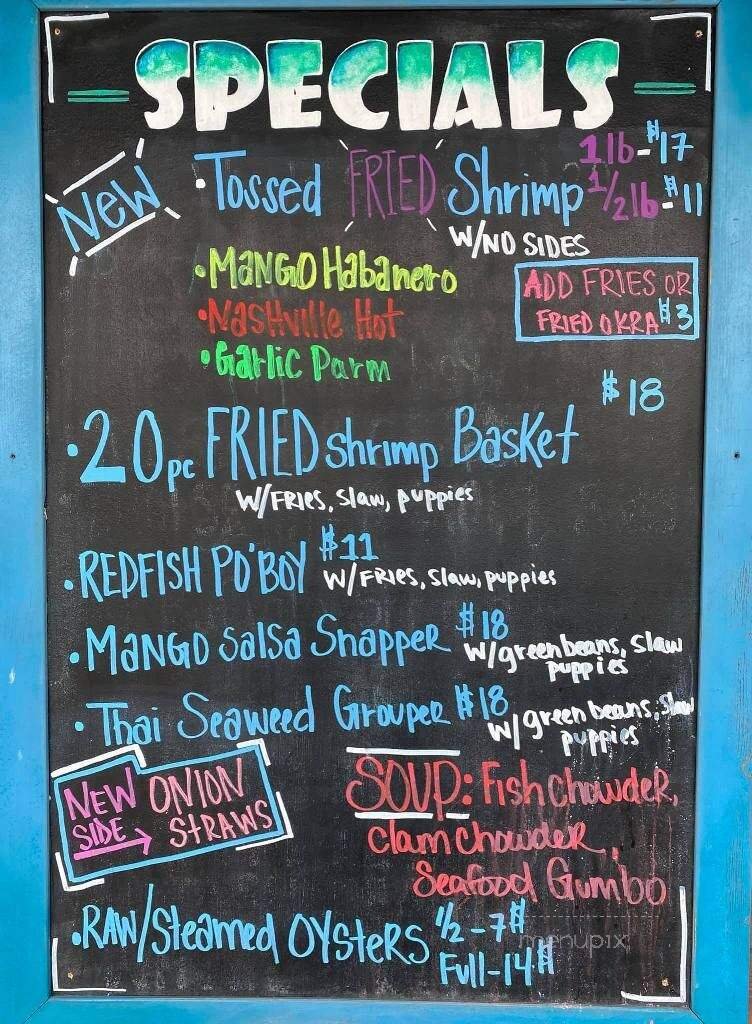 SPECIALS
New
• Tossed FRIED Shrimp
1 lb - $17
1/2 lb - $11
W/NO SIDES
• MANGO Habanero
• Nashville Hot
• Garlic Parm
ADD FRIES OR
FRIED OKRA $3
$18
• 20pc FRIED shrimp Basket
W/FRIES, slaw, puppies
• REDFISH PO'BOY $11
W/FRIES, slaw, puppies
• MANGO Salsa Snapper $18
w/greenbeans, slaw
puppies
• Thai Seaweed Grouper $18
w/green beans, slaw
puppies
NEW
SIDE
ONION
STRAWS
SOUP: Fish chowder,
clam chowder,
Seafood Gumbo
• RAW/Steamed OYsters
1/2 - 7$
Full - 14$
menupix